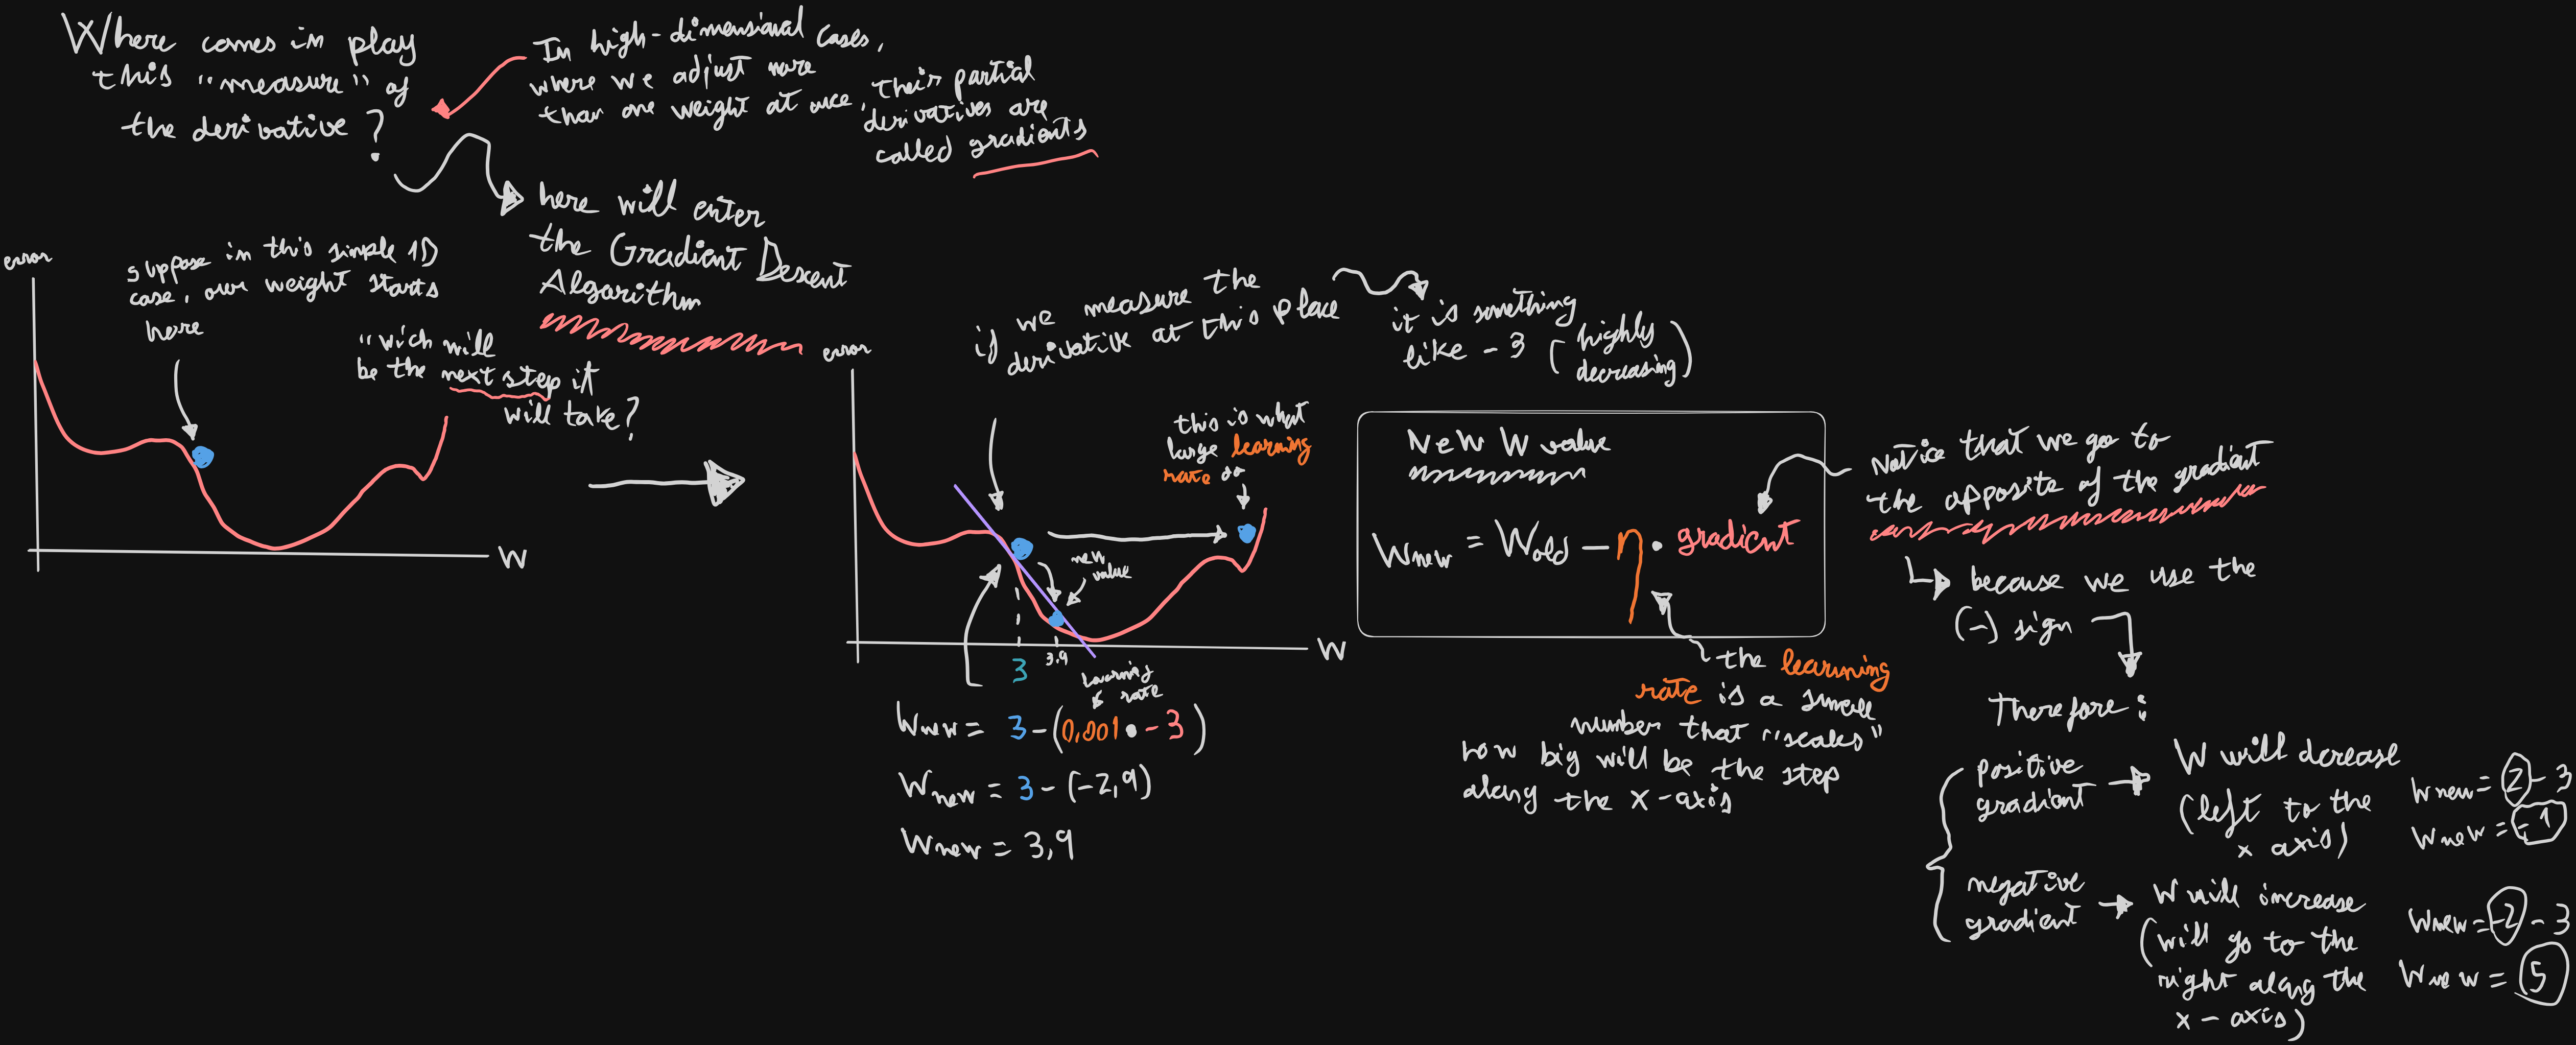 Where comes in play
this "measure" of
the derivative?
In high-dimensional cases,
where we adjust more
than one weight at once, their partial
derivatives are
called gradients
here will enter
the Gradient Descent
Algorithm
error
suppose in this simple 1D
case, our weight starts
here
"wich will
be the next step it
will take?
W
error
if we measure the
derivative at this place
it is something
like -3 (highly
decreasing)
this is what
large learning
rate do
new
value
W
3
3,9
learning
rate
Wnew = 3-(0,001•-3)
Wnew = 3-(-2,9)
Wnew = 3,9
New W value
Wnew = Wold - η • gradient
the learning
rate is a small
number that "scales"
how big will be the step
along the x-axis
Notice that we go to
the opposite of the gradient
because we use the
(-) sign
Therefore:
positive
gradient
W will decrease
(left to the
x axis)
Wnew = 2-3
Wnew = -1
negative
gradient
W will increase
(will go to the
right along the
x-axis)
Wnew = -2-3
Wnew = 5